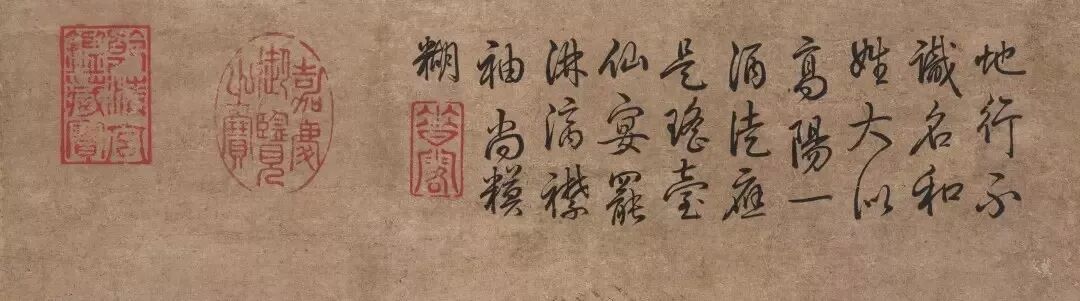 地行不
識名和
姓大似
高陽一
酒徒應
是瑤臺
仙宴罷
淋漓襟
袖尚糢
糊
嘉慶御覽之寶
乾清宮鑑藏寶